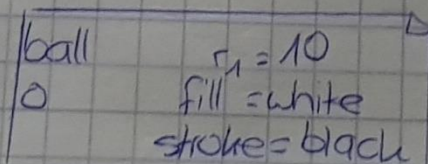 ball r₁ = 10
O fill = white
stroke = black